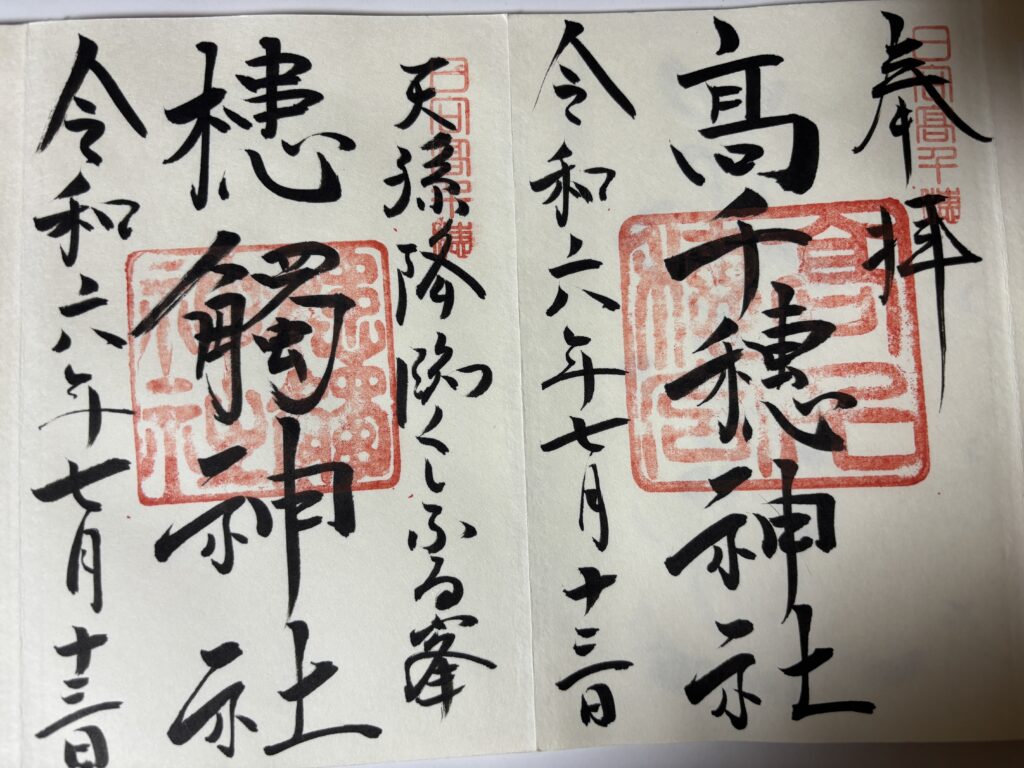 奉拝
日向高千穂
高千穂神社
令和六年七月十三日
天孫降臨くしふる峯
日向高千穂
槵觸神社
令和六年七月十三日